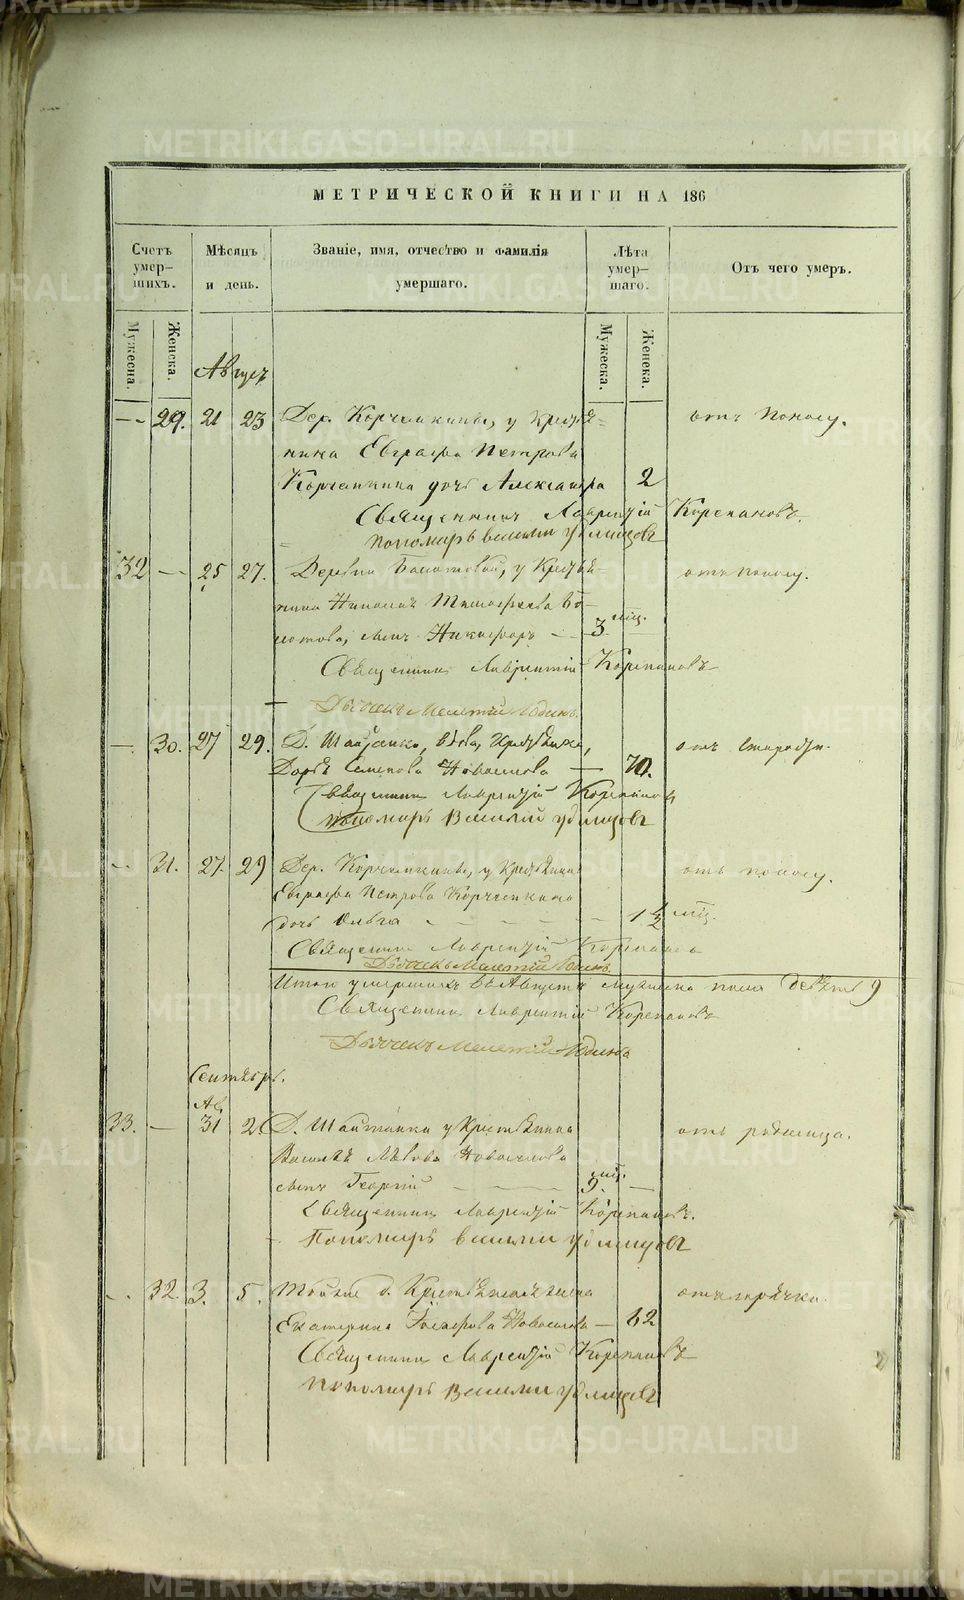 МЕТРИЧЕСКОЙ КНИГИ НА 186
Счетъ умер-шихъ.
Мѣсяцъ и день.
Званіе, имя, отчество и фамилія умершаго.
Лѣта умер-шаго.
Отъ чего умеръ.
Мужеска. Женска.
Мужеска. Женска.
Августъ
— 29. 21 23 Дер. Корчемкины, у крестья=
отъ поносу.
нина Евграфа Петрова
Корчемкина дочь Александра 2
Священникъ Лаврентій Корепановъ
пономарь Василій Удинцовъ
32 — 25 27. Деревни Болотовой, у Крестья-
отъ поносу.
нина Николая Тимофеева Бо-
лотова, сынъ Никифоръ — 3 мѣс.
Священникъ Лаврентій Корепановъ
Дьячекъ Мелетій
— 30. 27 29. Д. Шайтанки, вдова, Крестьянка,
отъ старости.
Дарья Семенова Новоселова — 70.
Священникъ Лаврентій Корепановъ
пономарь Василій Удинцовъ
— 31. 27. 29 Дер. Корчемкины, у крестьянина
отъ поносу.
Евграфа Петрова Корчемкина
дочь Ольга 1 1/2 мѣс.
Священникъ Лаврентій Корепановъ
Дьячекъ Мелетій
Итого умершихъ въ Августѣ мужеска пола девять 9
Священникъ Лаврентій Корепановъ
Дьячекъ Мелетій
Сентябрь.
Ав.
33. — 31 2. Д. Шайтанки у Крестьянина
отъ родимца.
Василья Львова Новоселова
сынъ Георгій — 9 мѣс. —
Священникъ Лаврентій Корепановъ.
Пономарь Василій Удинцовъ
— 32. 3. 5. Тойже д. Крестьянская жена
отъ горячки.
Екатерина Новоселова — 62
Священникъ Лаврентій Корепановъ
пономарь Василій Удинцовъ
METRIKI.GASO-URAL.RU